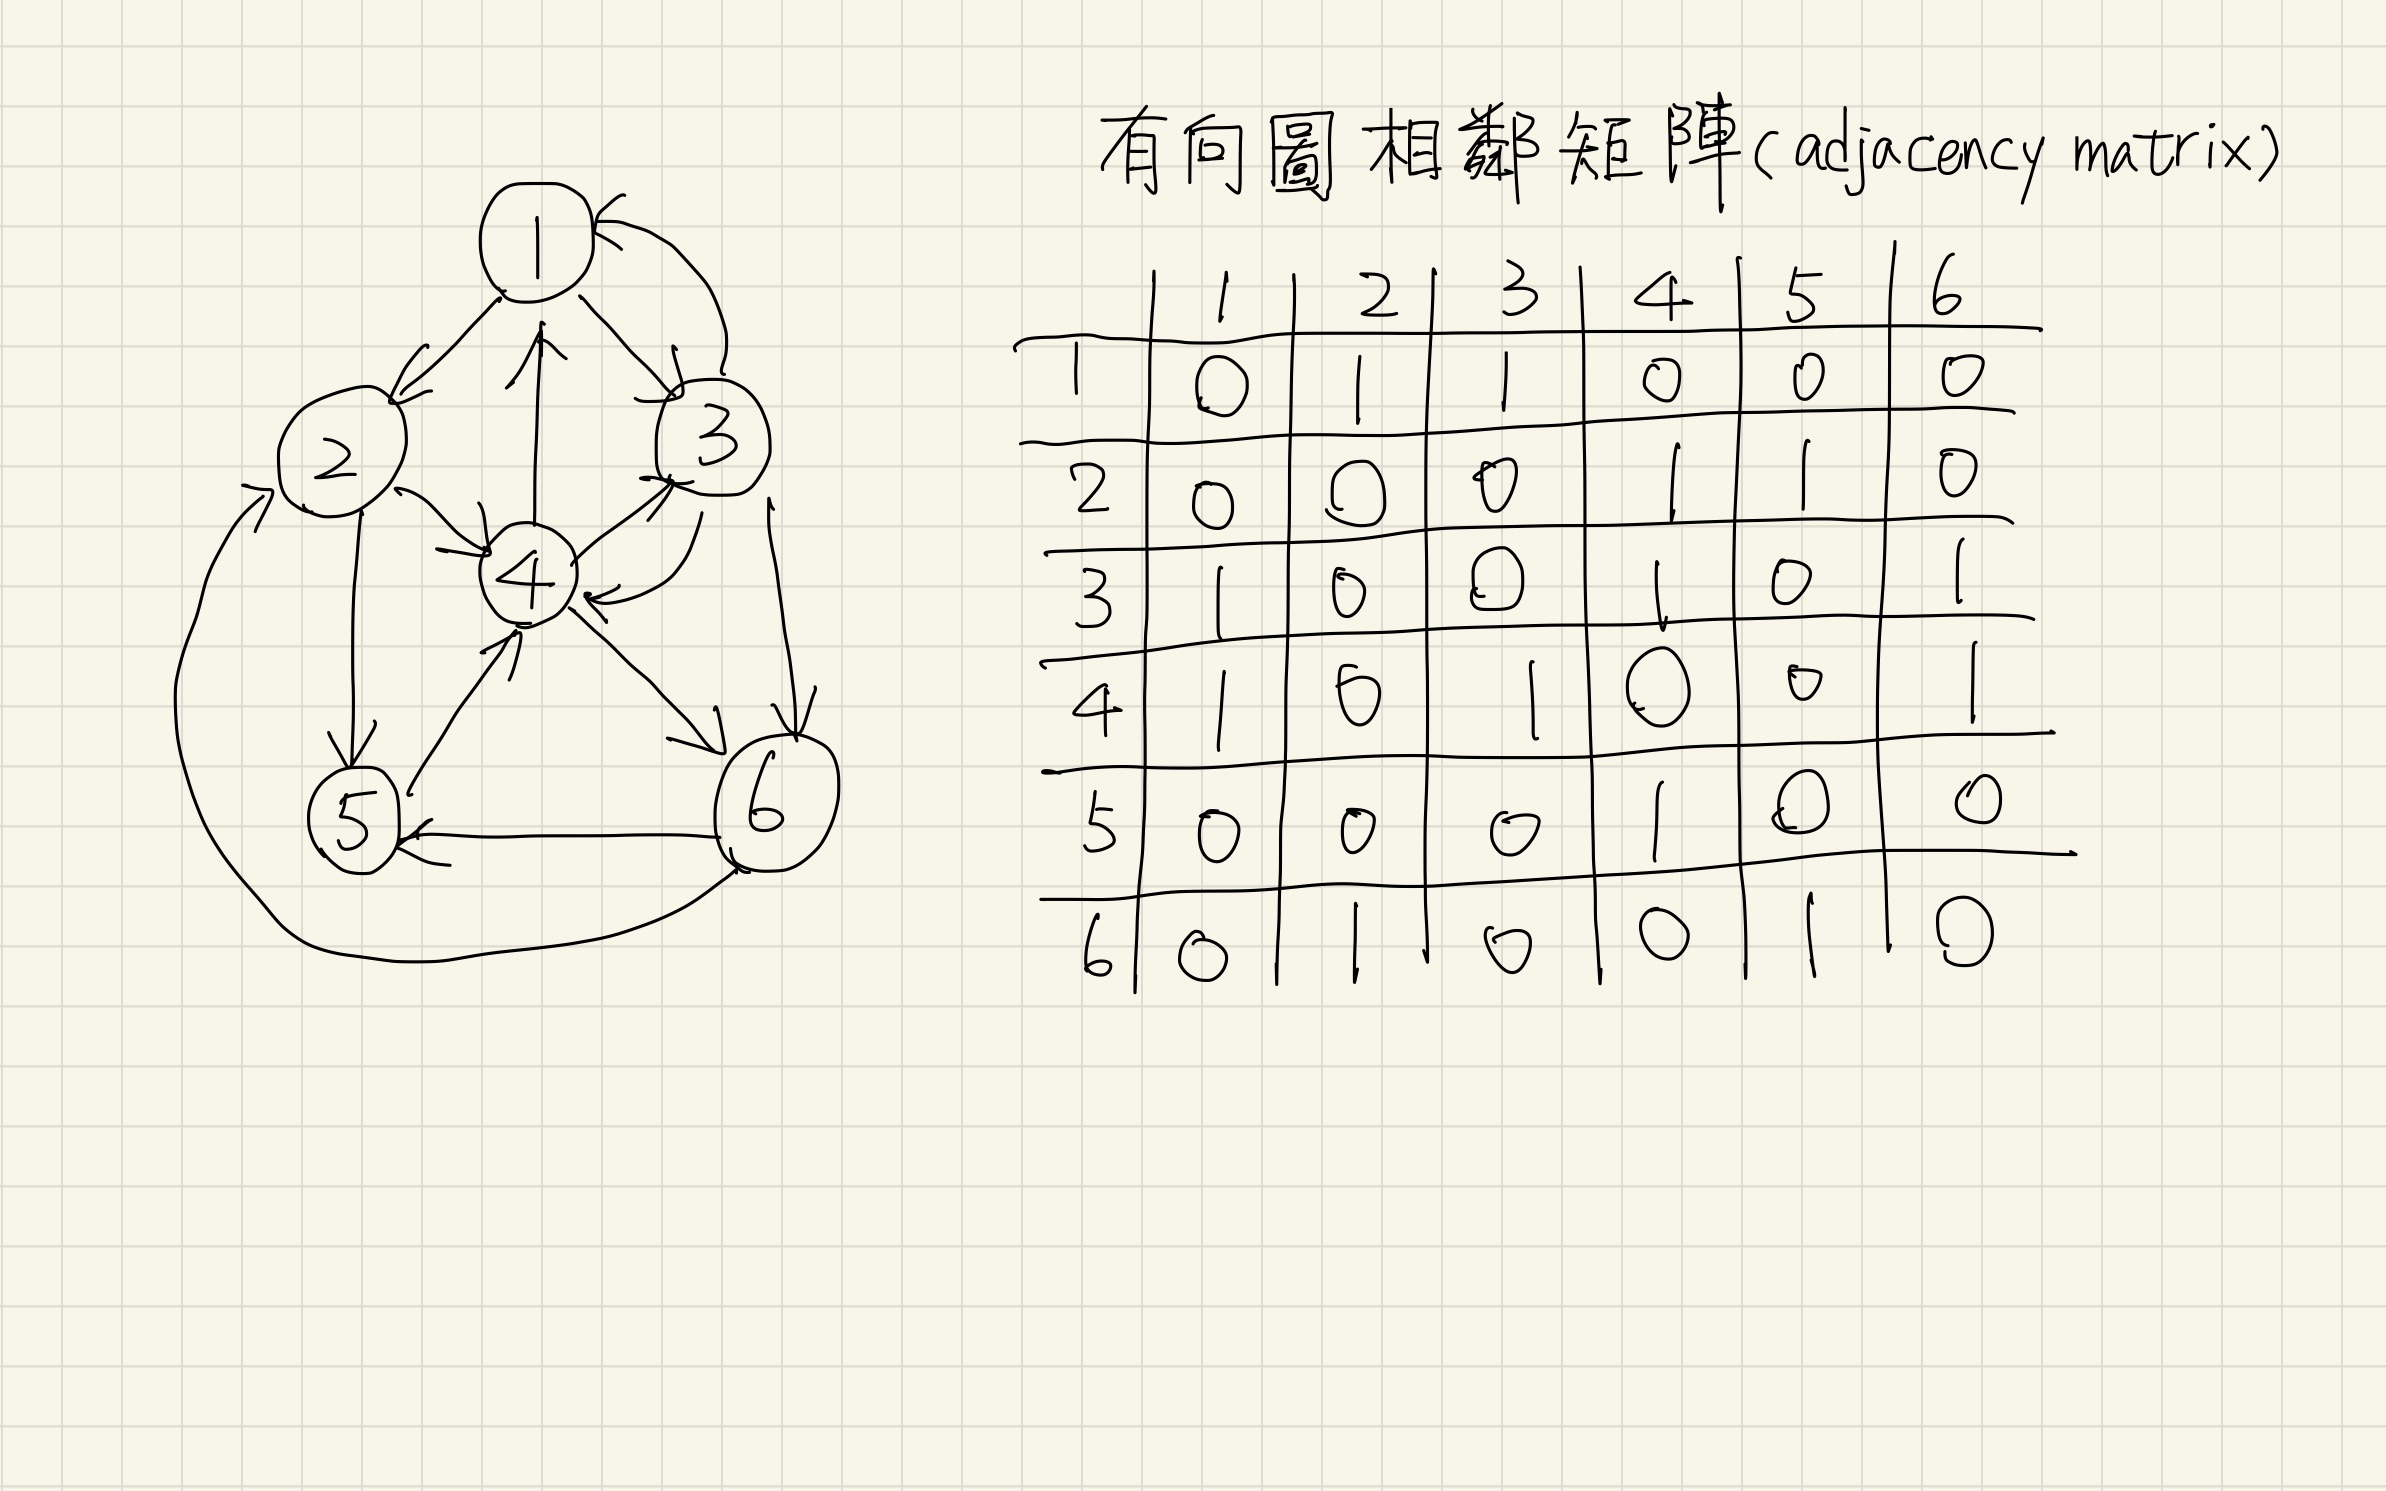 有向圖相鄰矩陣(adjacency matrix)
1
2
3
4
5
6
1 2 3 4 5 6
1 0 1 1 0 0 0
2 0 0 0 1 1 0
3 1 0 0 1 0 1
4 1 0 1 0 0 1
5 0 0 0 1 0 0
6 0 1 0 0 1 0